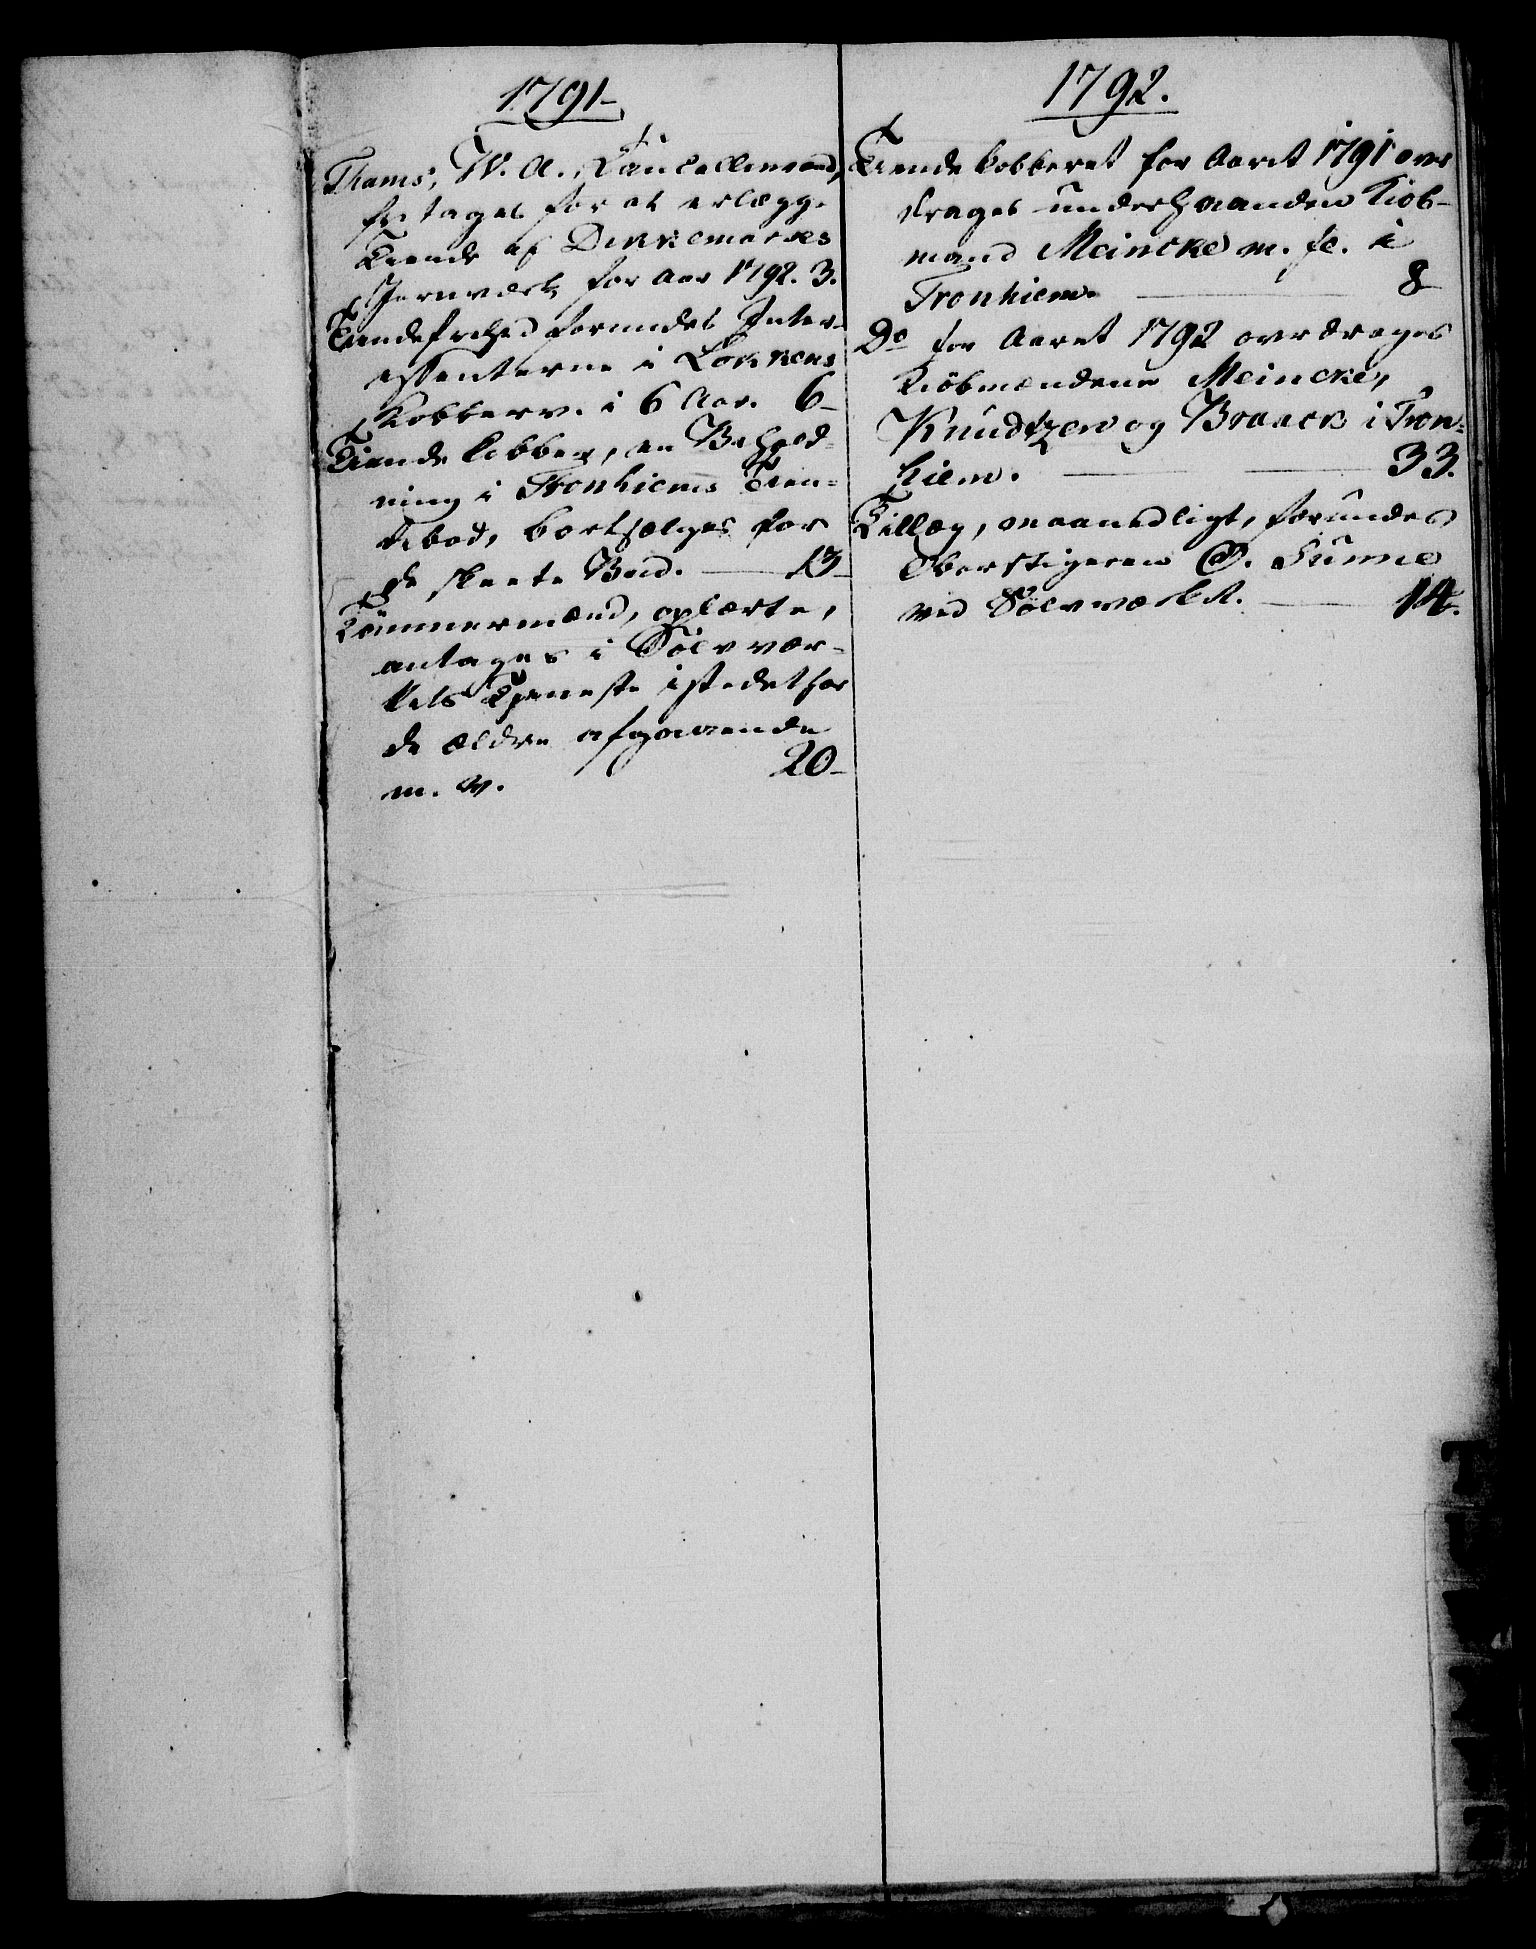 1791
Thams, W. A., Cancellieraad,
fritages for at erlægge
Tiende af Dikkemarkes
Jernværk for Aar 1792. 3.
Tiendefrihed forundes Inter-
essenterne i Løkkens
Kobberv. i 6 Aar. 6
Tiende Kobber, en Behold-
ning i Tronhiems Tien-
debod, bortsælges for
de skeete Bud. 13
Tømmermænd, oplærte,
antages i Sølvvær-
kets Tieneste istedetfor
de ældre afgaaende
m. v. 20
1792.
Tiende Kobberet for Aaret 1791 over
drages underhaanden Kiøb-
mand Meincke m. fl. i
Tronhiem. 8
Do for Aaret 1792 overdrages
Kiøbmændene Meincke,
Knudtzen og Braack i Tron-
hiem. 33.
Tillæg, maanedligt, forundes
Oberstigeren O. Sunne
ved Sølvværket. 14.
T
U
V
X
Y
Z